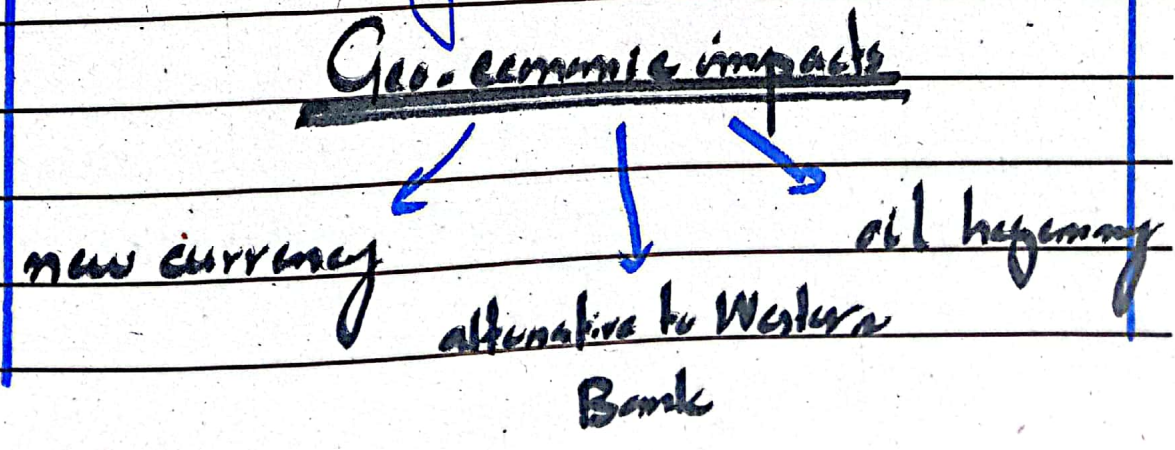 Geo-economic impacts
new currency
alternative to Western
Bank
oil hegemony